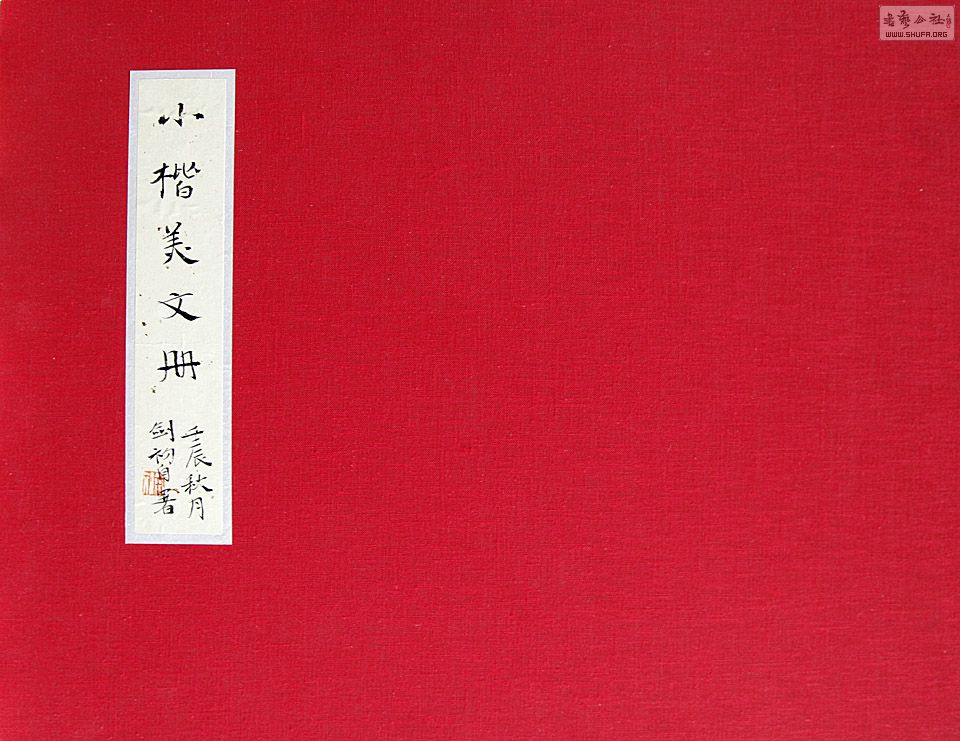 小楷美文册
壬辰秋月
剑初自署
书艺公社
WWW.SHUFA.ORG